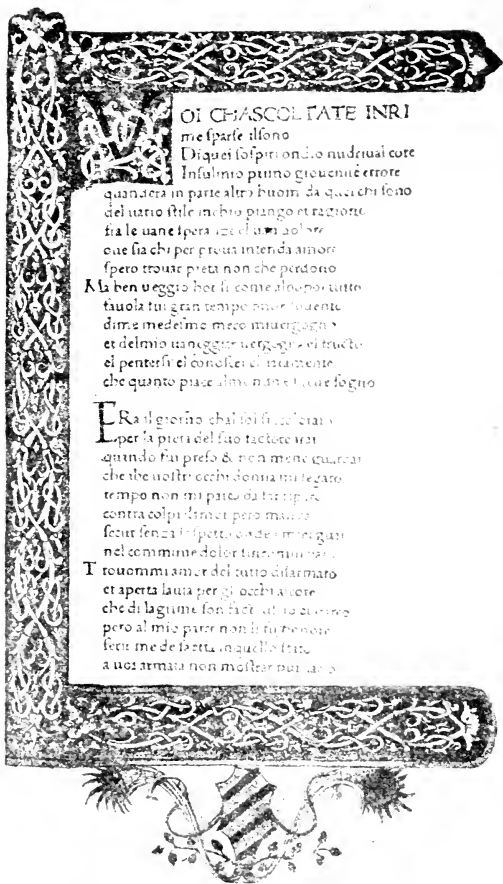 VOI CHASCOLTATE INRI
me sparse ilsono
Di quei sospiri ondio nudriual core
Insulmio primo giouenile errore
quandera in parte altro huom da quei chi sono
del uario stile inchio piango et ragiono
fra le uane spera
oue sia chi per proua intenda amore
spero trouar pieta non che perdono
Ma ben ueggio hor si come alpopol tutto
fauola fui gran tempo onde souente
dime medesmo meco miuergogno
et delmio uaneggiar uergogna el fructo
el pentersi el conoscer chiaramente
che quanto piace almondo e breue sogno
ERa il giorno chal sol si scoloraro
per la pieta del suo factore
quando fui preso & non mene guardai
che ibe uostri occhi donna mi legaro
tempo non mi parea da far riparo
contra colpi damor pero
secur senza sospetto onde i miei guai
nel commune dolor
Trouommi amor del tutto disarmato
et aperta lauia per gliocchi alcore
che di lagrime son facti
pero al mio parer non li fu honore
ferir me de saetta in quello stato
a uoi armata non mostrar pur larco